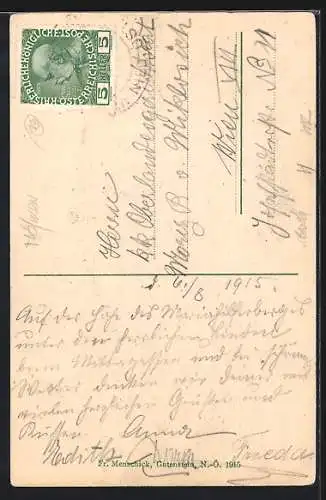 KAISERLICHE KÖNIGLICHE ÖSTERREICHISCHE POST
5 HELLER 5
Herrn
kk Oberlandesgerichtsrat
Moriz R. v. Miklosich
Wien VIII
Josefstädterstr. No 11
6./8. 1915.
Auf der Höhe des Mariahilferberges
unter den herrlichen Linden
beim Mittagessen und bei schönem
Wetter denken wir deiner mit
vielen herzlichen Grüßen und
Küssen. Anna
Edith Frieda
Fr. Menschick, Gutenstein, N.-Ö. 1915